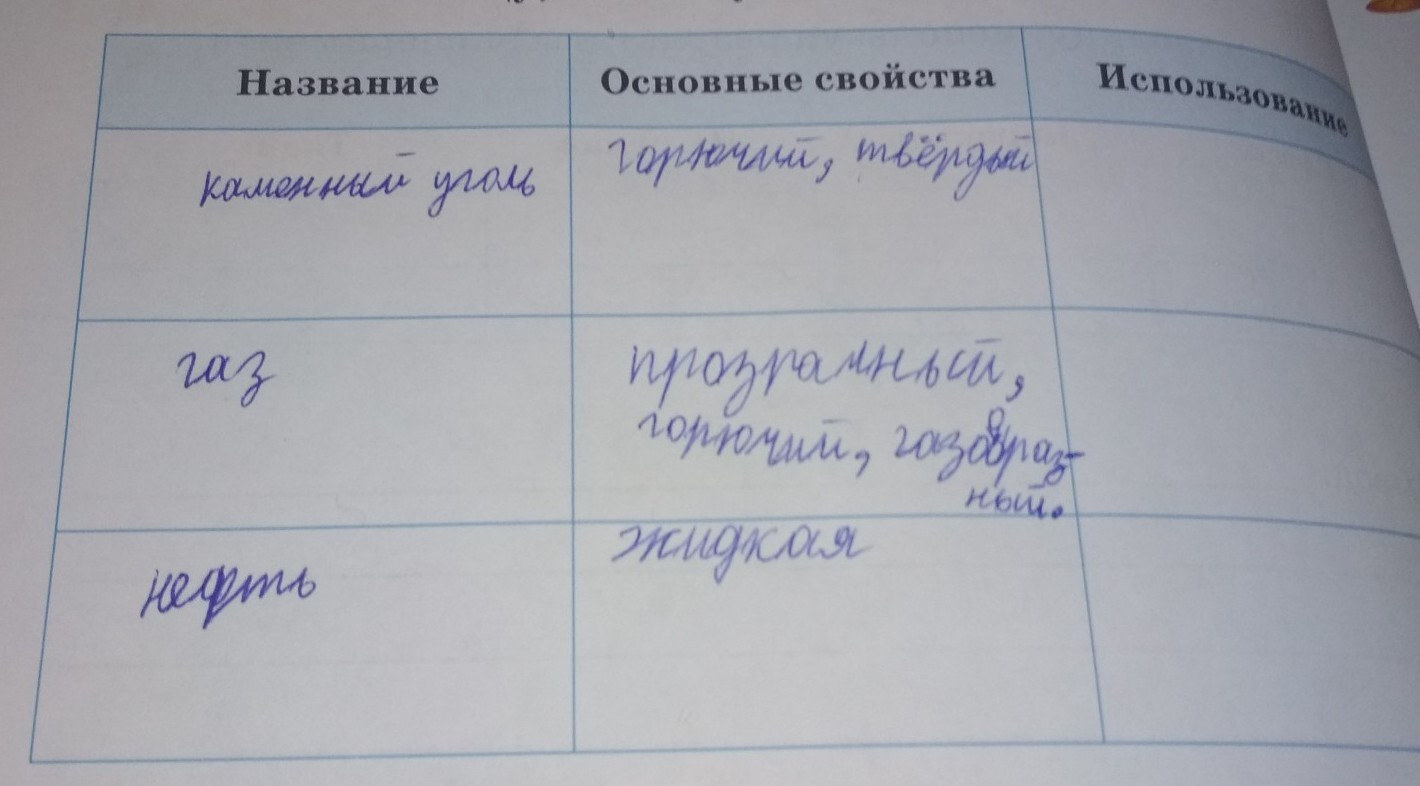 Название
Основные свойства
Использование
каменный уголь
горючий, твёрдый
газ
прозрачный,
горючий, газообраз-
ный.
нефть
жидкая